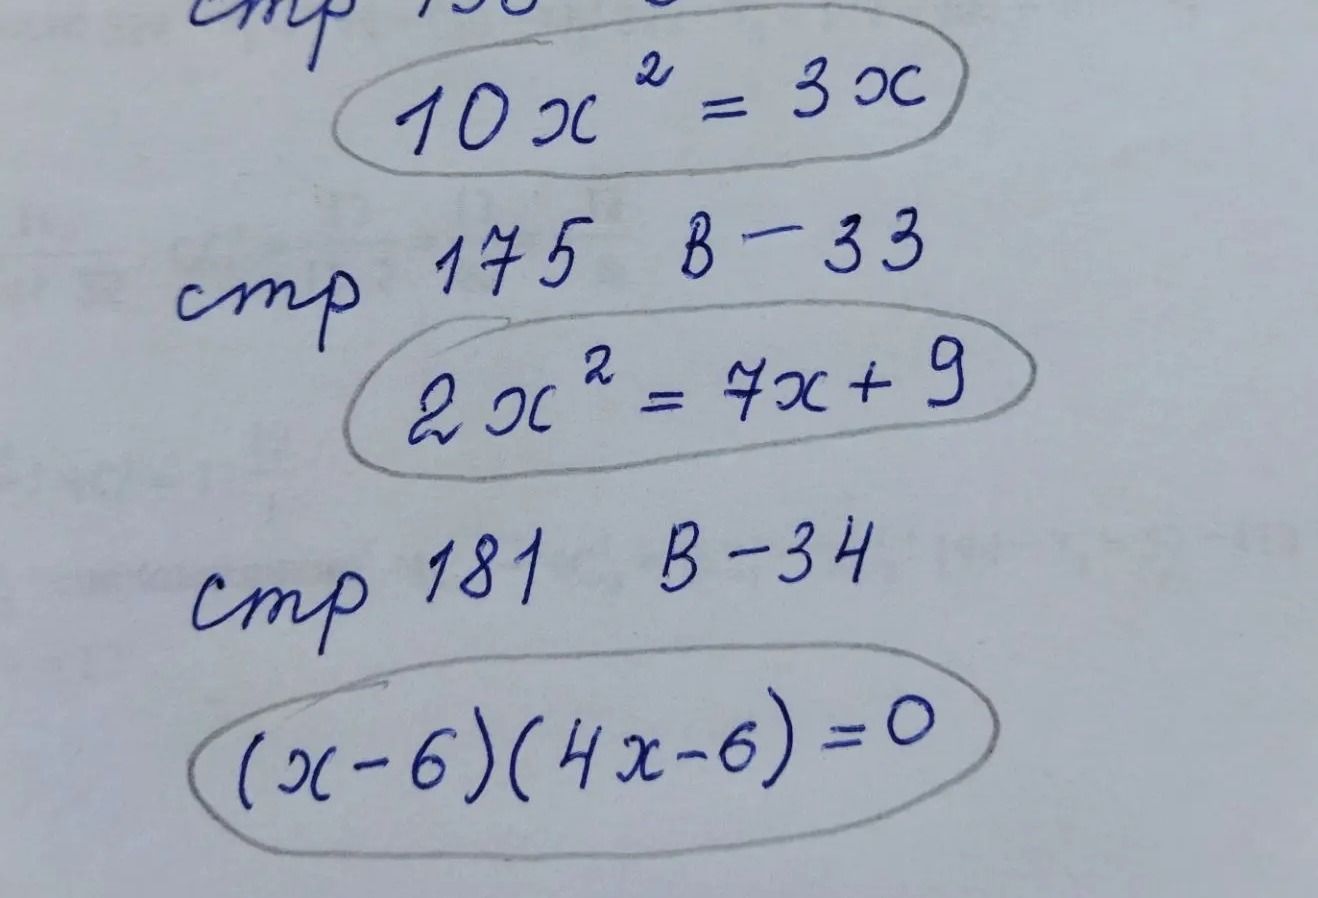 стр
10x² = 3x
стр 175 В – 33
2x² = 7x + 9
стр 181 В – 34
(x – 6)(4x – 6) = 0